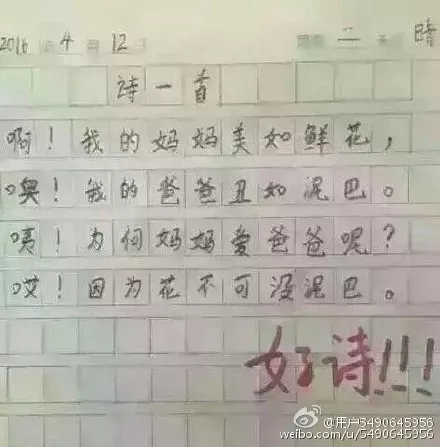 2016 年 4 月 12 日 星期 二 天气 晴
诗一首
啊！我的妈妈美如鲜花，
噢！我的爸爸丑如泥巴。
咦！为何妈妈爱爸爸呢？
哎！因为花不可没泥巴。
好诗!!!
@用户5490645956
weibo.com/u/5490645956